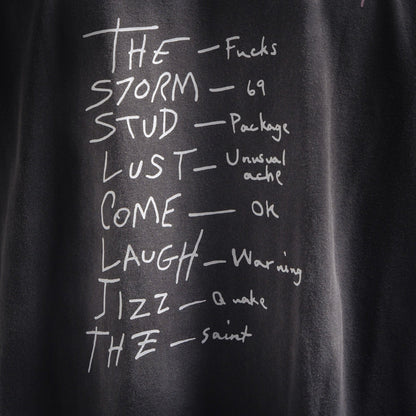 THE – Fucks
STORM – 69
STUD – Package
LUST – Unusual
ache
COME – OK
LAUGH – Warning
JIZZ – Quake
THE – saint